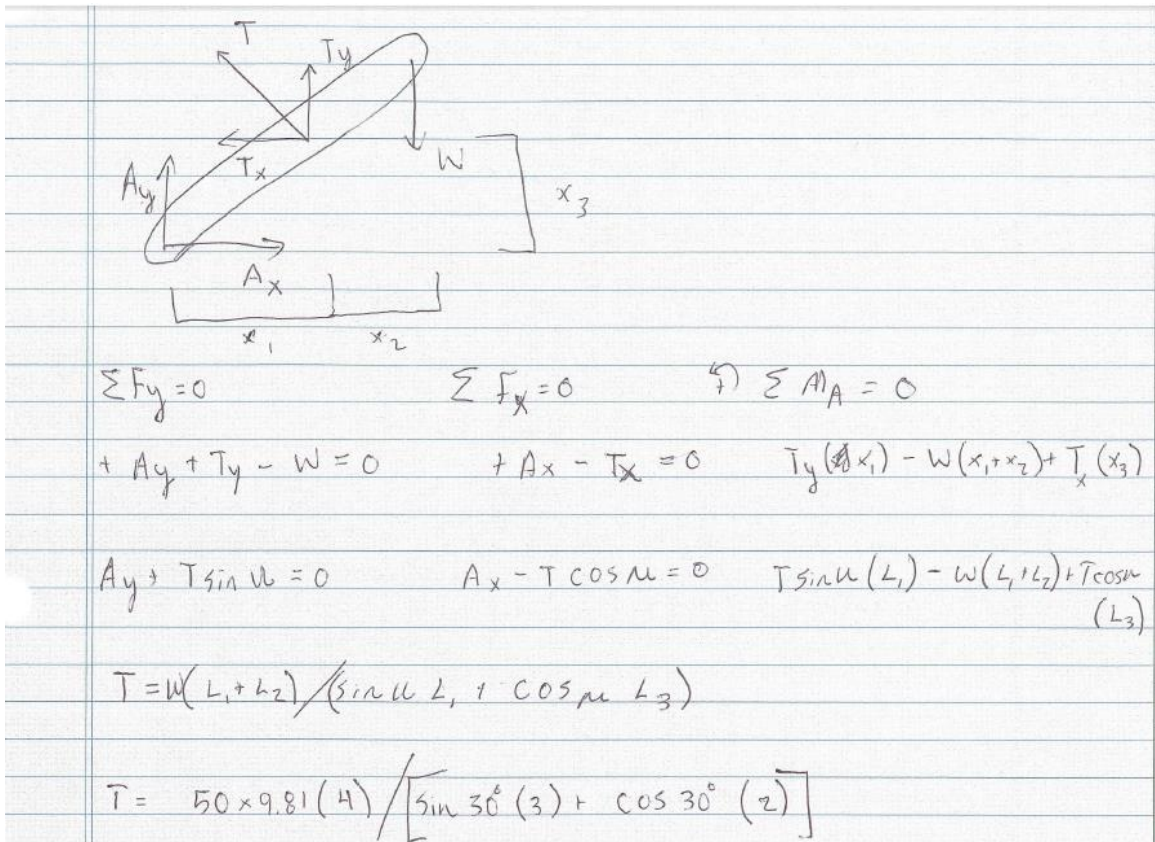 T
Ty
Tx
W
Ay
x3
Ax
x1 x2
ΣFy = 0 ΣFx = 0 ↶+) ΣMA = 0
+ Ay + Ty - W = 0 + Ax - Tx = 0 Ty(x1) - W(x1+x2) + Tx(x3)
Ay + T sin u = 0 Ax - T cos u = 0 T sin u (L1) - W(L1+L2) + T cos u
(L3)
T = W(L1+L2) / (sin u L1 + cos u L3)
T = 50×9.81(4) / [sin 30° (3) + cos 30° (2)]